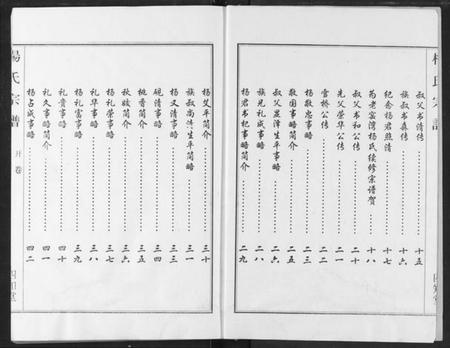 叔父书清传 十五
族叔书真传 十六
纪念杨君照清 十七
为老窑湾杨氏续修宗谱贺 十八
叔父书和公传 二十
先父荣华公传 二一
雪桥公传 二二
杨敬忠事略 二三
敬国事略简介 二五
叔父晁泽生平事略 二六
族兄礼成事略 二八
杨君书杞事略简介 二九
楊氏宗譜
开卷
四知堂
杨艾平简介 三十
族叔尚传生平简略 三一
杨义清事略 三三
砚清事略 三四
桃香简介 三五
秋媛简介 三六
杨礼荣事略 三七
礼华事略 三八
杨礼富事略 三九
礼贵事略 四十
礼久事略简介 四一
杨占成事略 四二